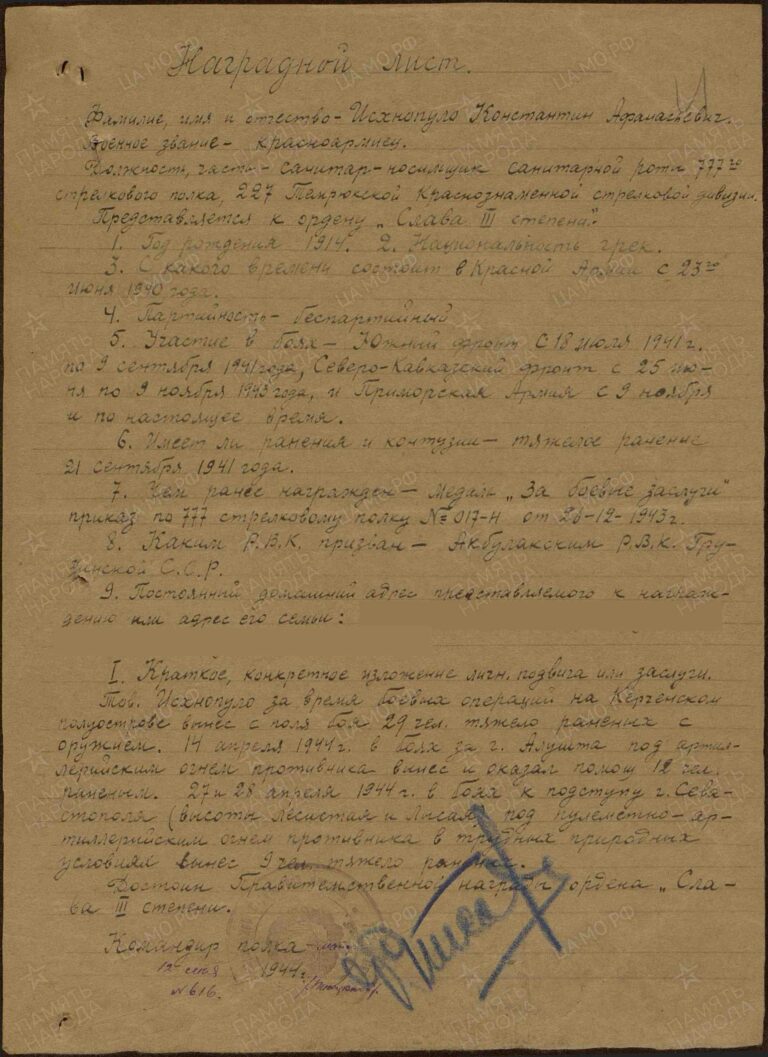 Наградной лист.
Фамилие, имя и отчество – Исхнопуло Константин Афанасьевич.
Военное звание – красноармиец.
Должность, часть – санитар-носильщик санитарной роты 777го
стрелкового полка, 227 Темрюкской Краснознаменной стрелковой дивизии.
Представляется к ордену „Слава III степени".
1. Год рождения 1914. 2. Национальность грек.
3. С какого времени состоит в Красной Армии с 23го
июня 1940 года.
4. Партийность – беспартийный
5. Участие в боях – Южный фронт с 18 июля 1941 г.
по 9 сентября 1941 года, Северо-Кавказский фронт с 25 ию-
ня по 9 ноября 1943 года, и Приморская Армия с 9 ноября
и по настоящее время.
6. Имеет ли ранения и контузии – тяжелое ранение
21 сентября 1941 года.
7. Чем ранее награжден – медаль „За боевые заслуги"
приказ по 777 стрелковому полку № 017-Н от 26-12-1943 г.
8. Каким Р.В.К. призван – Акбулакским Р.В.К. Гру-
зинской С.С.Р.
9. Постоянный домашний адрес представляемого к награж-
дению или адрес его семьи:
I. Краткое, конкретное изложение личн. подвига или заслуги.
Тов. Исхнопуло за время боевых операций на Керченском
полуострове вынес с поля боя 29 чел. тяжело раненых с
оружием. 14 апреля 1944 г. в боях за г. Алушта под артил-
лерийским огнем противника вынес и оказал помощ 12 чел.
раненым. 27 и 28 апреля 1944 г. в боях к подступу г. Сева-
стополя (высоты Лесистая и Лысая) под пулеметно-ар-
тиллерийским огнем противника в трудных природных
условиях вынес 9 чел. тяжело раненых.
Достоин Правительственной награды ордена „Сла-
ва III степени.
Командир полка –
1944 г.
№ 616.
ПАМЯТЬ НАРОДА
ЦАМО.РФ